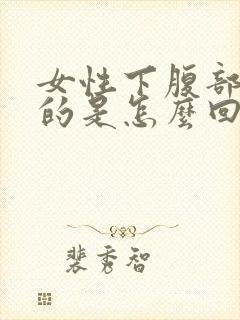 女性下腹部
的是怎麼回
裴秀智